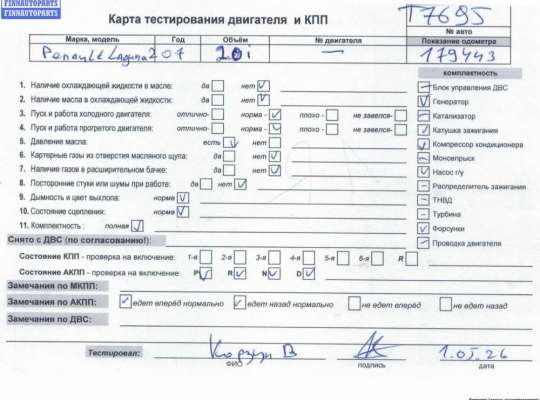 FINNAUTOPARTS
FINNAUTOPARTS
Карта тестирования двигателя и КПП
T7695
№ авто
Марка, модель Год Объём № двигателя Показание одометра
Renault Laguna 2 07 2.0i — 179443
комплектность
1. Наличие охлаждающей жидкости в масле: да нет
2. Наличие масла в охлаждающей жидкости: да нет
3. Пуск и работа холодного двигателя: отлично- норма - плохо - не завелся-
4. Пуск и работа прогретого двигателя: отлично- норма - плохо - не завелся-
5. Давление масла: есть нет
6. Картерные газы из отверстия масляного щупа: да нет
7. Наличие газов в расширительном бачке: да нет
8. Посторонние стуки или шумы при работе: да нет
9. Дымность и цвет выхлопа: норма
10. Состояние сцепления: норма
11. Комплектность : полная
Блок управления ДВС
Генератор
Катализатор
Катушка зажигания
Компрессор кондиционера
Моновпрыск
Насос г/у
Распределитель зажигания
ТНВД
Турбина
Форсунки
Проводка двигателя
Снято с ДВС (по согласованию!):
Состояние КПП - проверка на включение: 1-я 2-я 3-я 4-я 5-я 6-я R
Состояние АКПП - проверка на включение: P R N D
Замечания по МКПП:
Замечания по АКПП: едет вперёд нормально едет назад нормально не едет вперёд не едет назад
Замечания по ДВС:
Тестировал: Корзун В 1.05.26
ФИО подпись дата